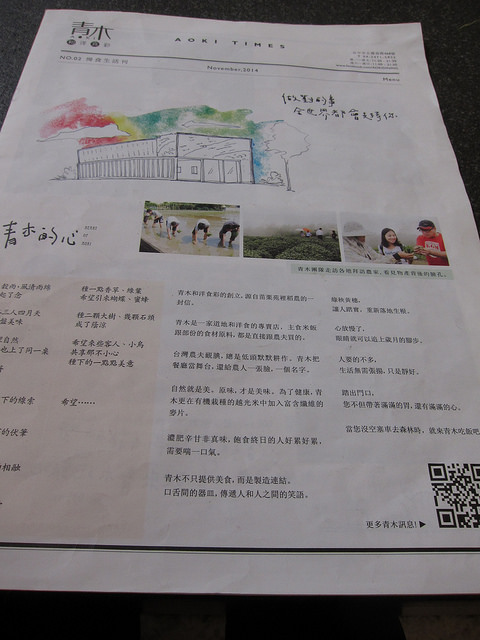 青木
和洋食彩
AOKI TIMES
NO.02 陳青生活刊
November.2014
Menu
做對的事
全世界都會支持你
青木的心
青木團隊走訪各地拜訪農家，看見物產背後的臉孔。
種一點香草、綠葉
希望引來蝴蝶、蜜蜂
種二顆大樹、幾顆石頭
成了陰涼
希望來些客人、小鳥
共享那不小心
種下的一點點美意
希望......
青木和洋食彩的創立，源自苗栗苑裡稻農的一
封信。
青木是一家道地和洋食的專賣店，主食米飯
跟部份的食材原料，都是直接跟農夫買的。
台灣農夫靦腆，總是低頭默默耕作。青木把
餐廳當舞台，還給農人一張臉，一個名字。
自然就是美。原味，才是美味。為了健康，青
木更在有機栽種的越光米中加入富含纖維的
麥片。
濃肥辛甘非真味，飽食終日的人好累好累，
需要喘一口氣。
青木不只提供美食，而是製造連結。
口舌間的器皿，傳遞人和人之間的笑語。
讓人踏實，重新落地生根。
心放慢了，
眼睛就可以追上歲月的腳步。
人要的不多，
生活無需張揚，只是靜好。
踏出門口，
您不但帶著滿滿的胃，還有滿滿的心。
當您沒空塞車去森林時，就來青木吃飯吧
更多青木訊息!▶